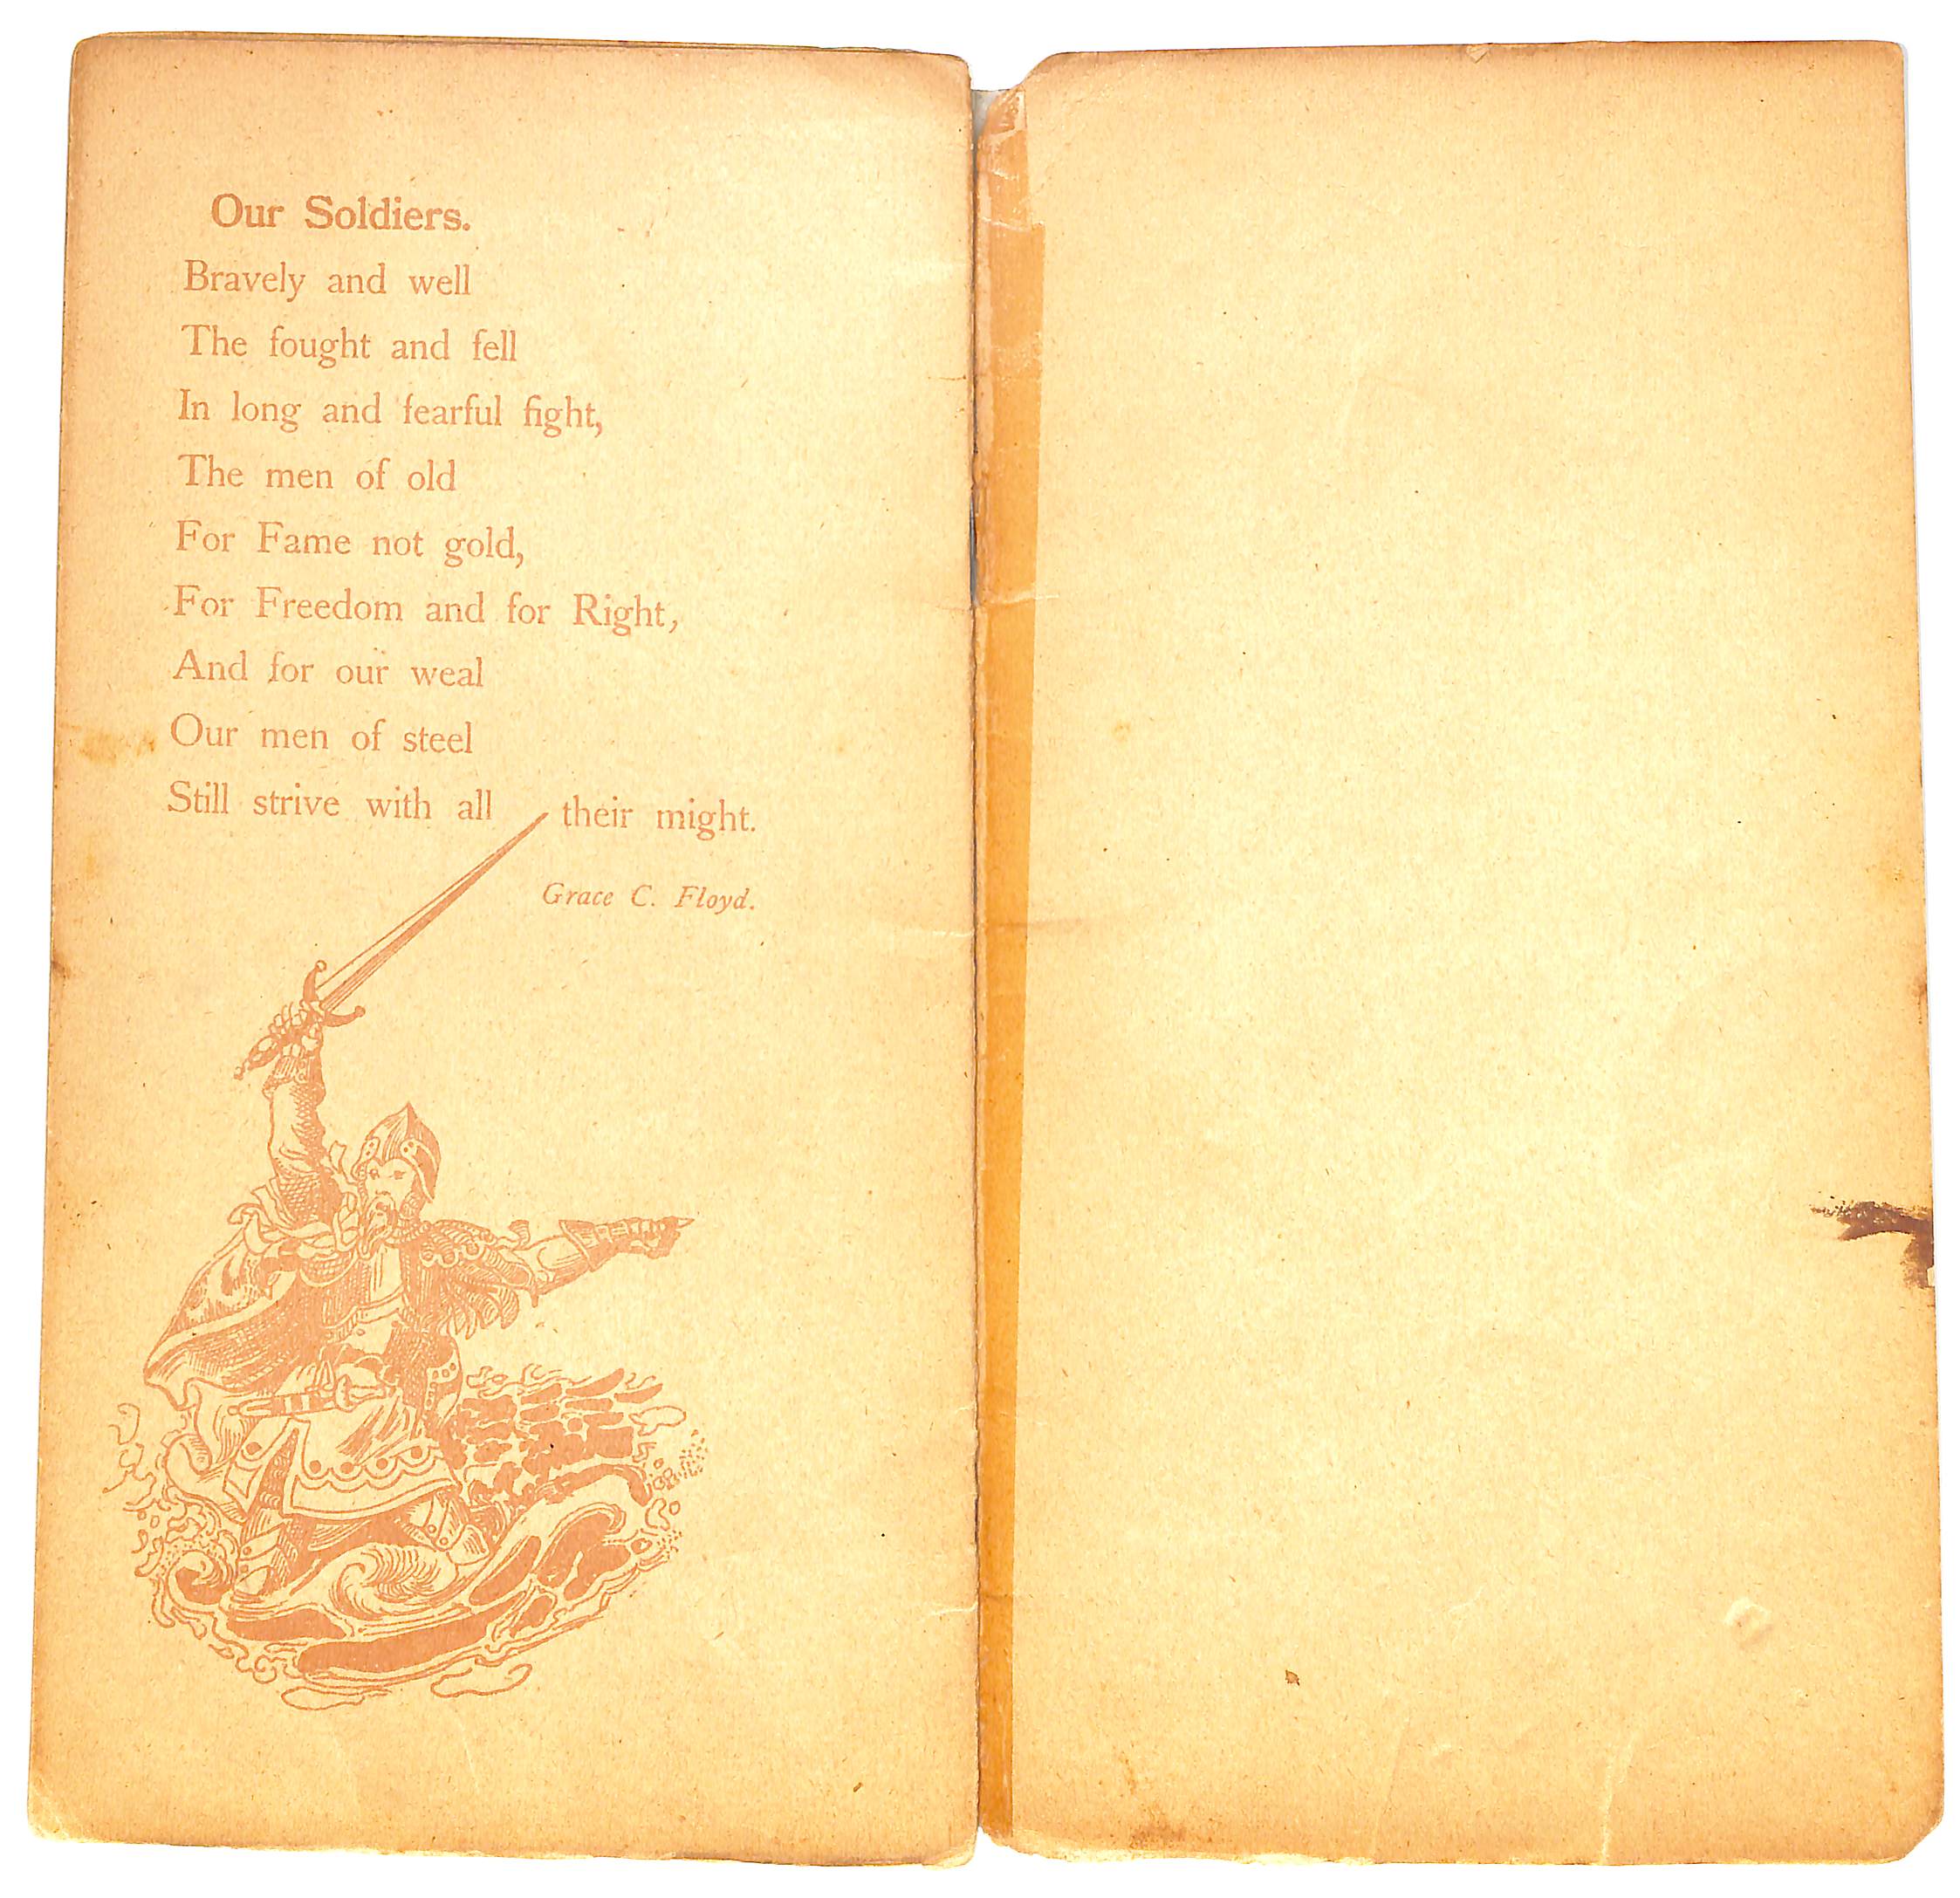 Our Soldiers.
Bravely and well
The fought and fell
In long and fearful fight,
The men of old
For Fame not gold,
For Freedom and for Right,
And for our weal
Our men of steel
Still strive with all their might.
Grace C. Floyd.